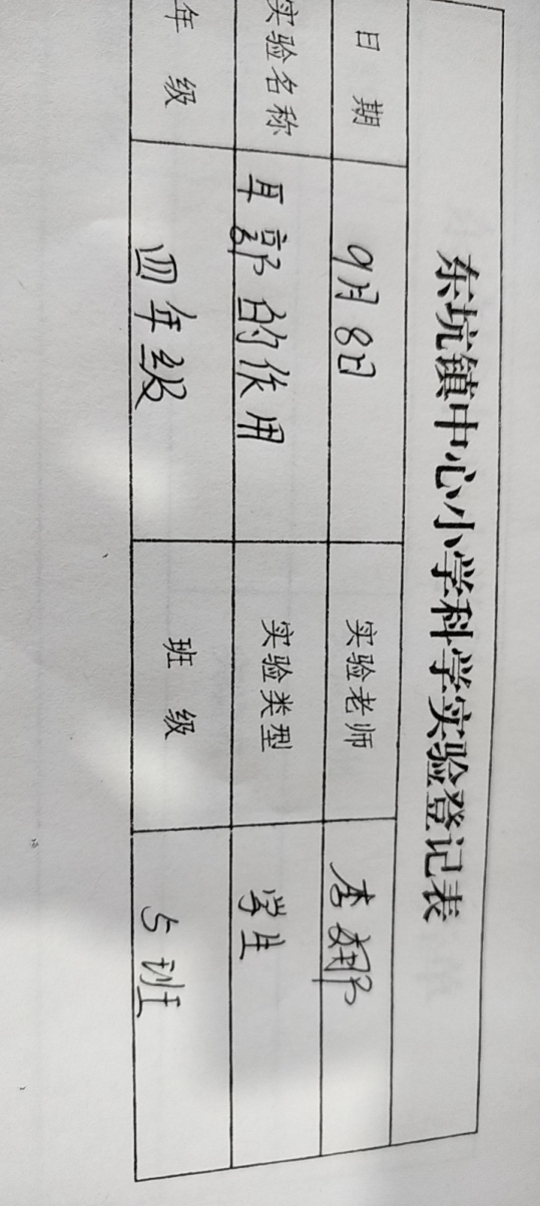 东坑镇中心小学科学实验登记表
日 期 9月8日 实验老师 李娜
实验名称 耳部的作用 实验类型 学生
年 级 四年级 班 级 5班